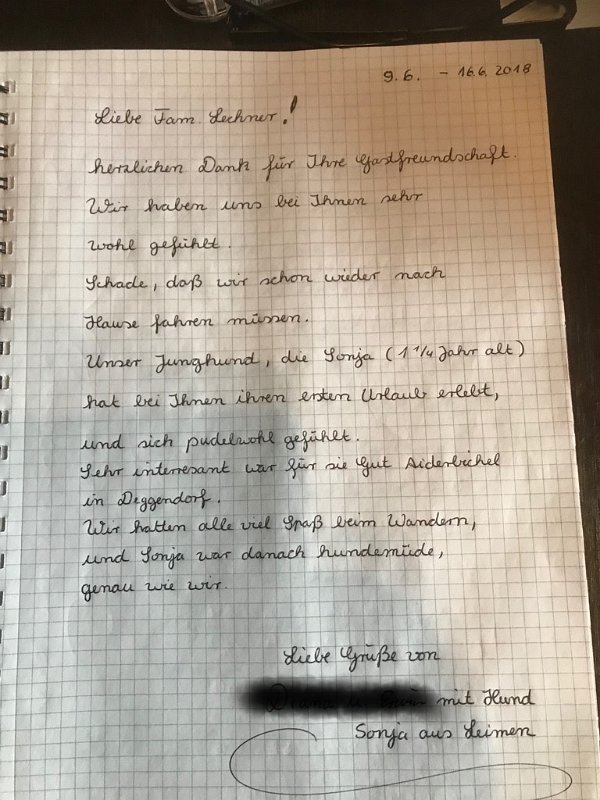 9.6. – 16.6.2018
Liebe Fam. Lechner!
herzlichen Dank für Ihre Gastfreundschaft.
Wir haben uns bei Ihnen sehr
wohl gefühlt.
Schade, daß wir schon wieder nach
Hause fahren müssen.
Unser Junghund, die Sonja (1 1/4 Jahr alt)
hat bei Ihnen ihren ersten Urlaub erlebt,
und sich pudelwohl gefühlt.
Sehr interresant war für sie Gut Aiderbichel
in Deggendorf.
Wir hatten alle viel Spaß beim Wandern,
und Sonja war danach hundemüde,
genau wie wir.
Liebe Grüße von
mit Hund
Sonja aus Leimen